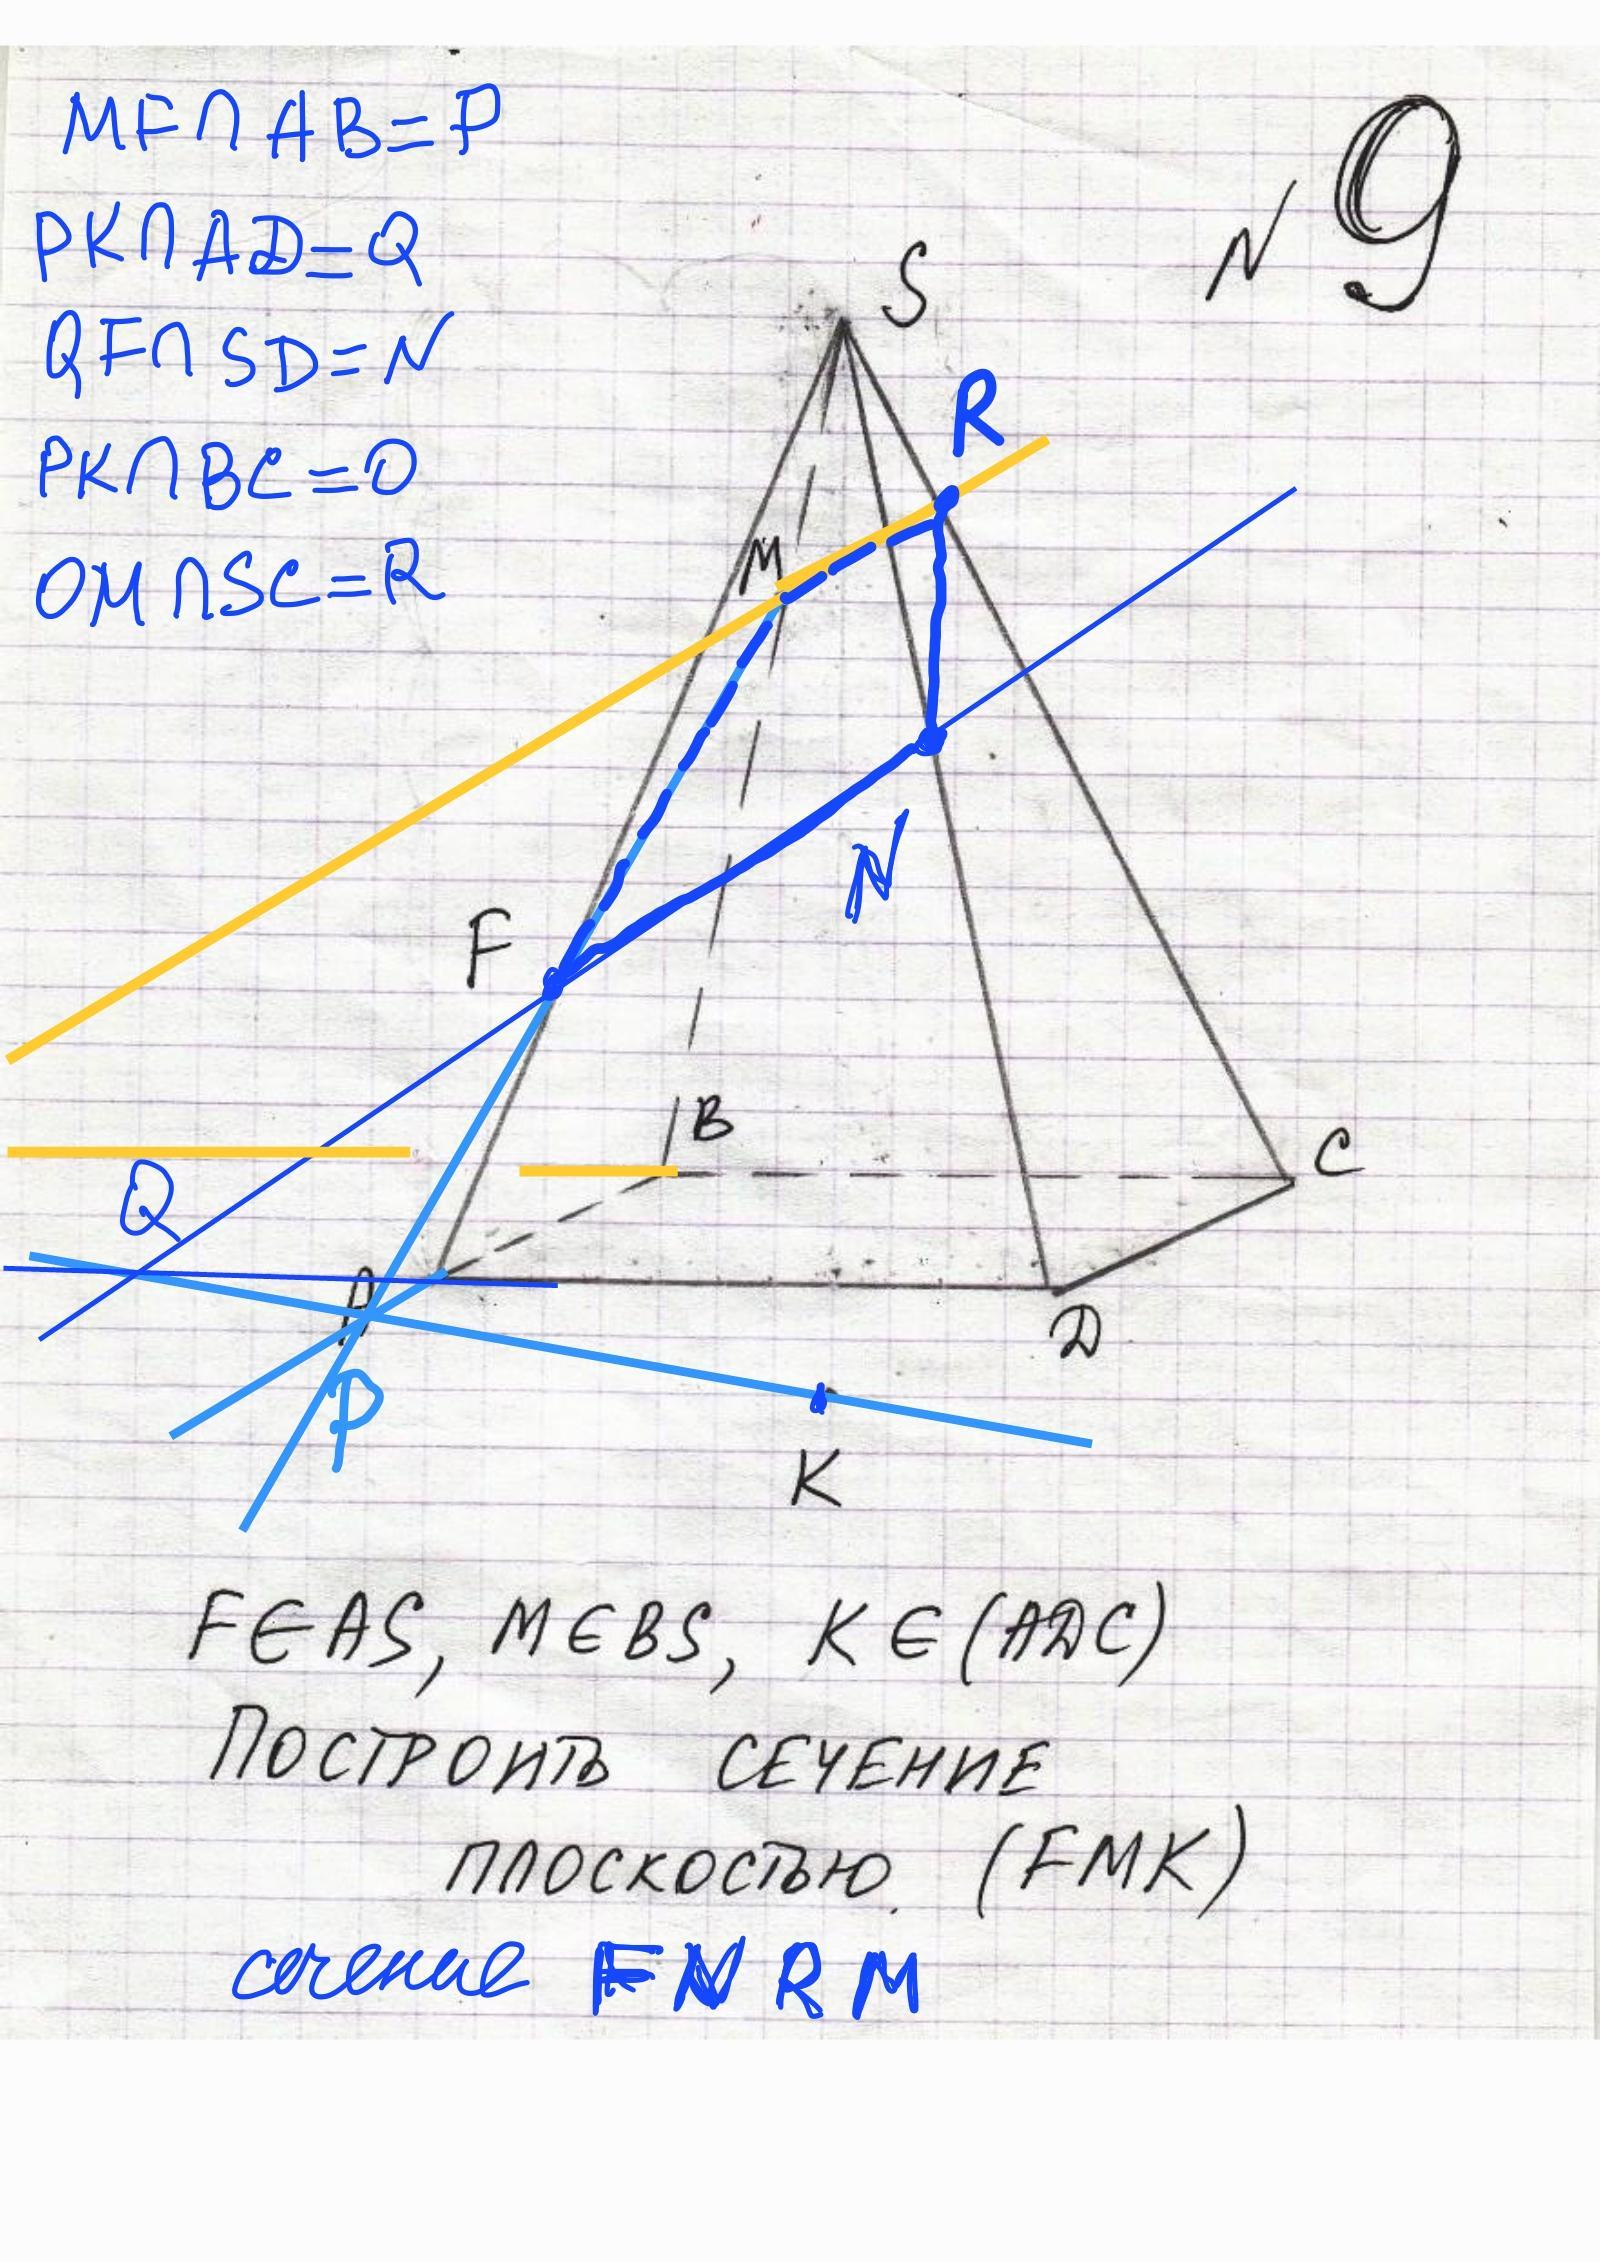 MF∩AB=P
PK∩AD=Q
QF∩SD=N
PK∩BC=O
OM∩SC=R
N 9
S
R
M
N
F
B
C
Q
A
D
P
K
F∈AS, M∈BS, K∈(ADC)
ПОСТРОИТЬ СЕЧЕНИЕ
ПЛОСКОСТЬЮ (FMK)
сечение FNRM